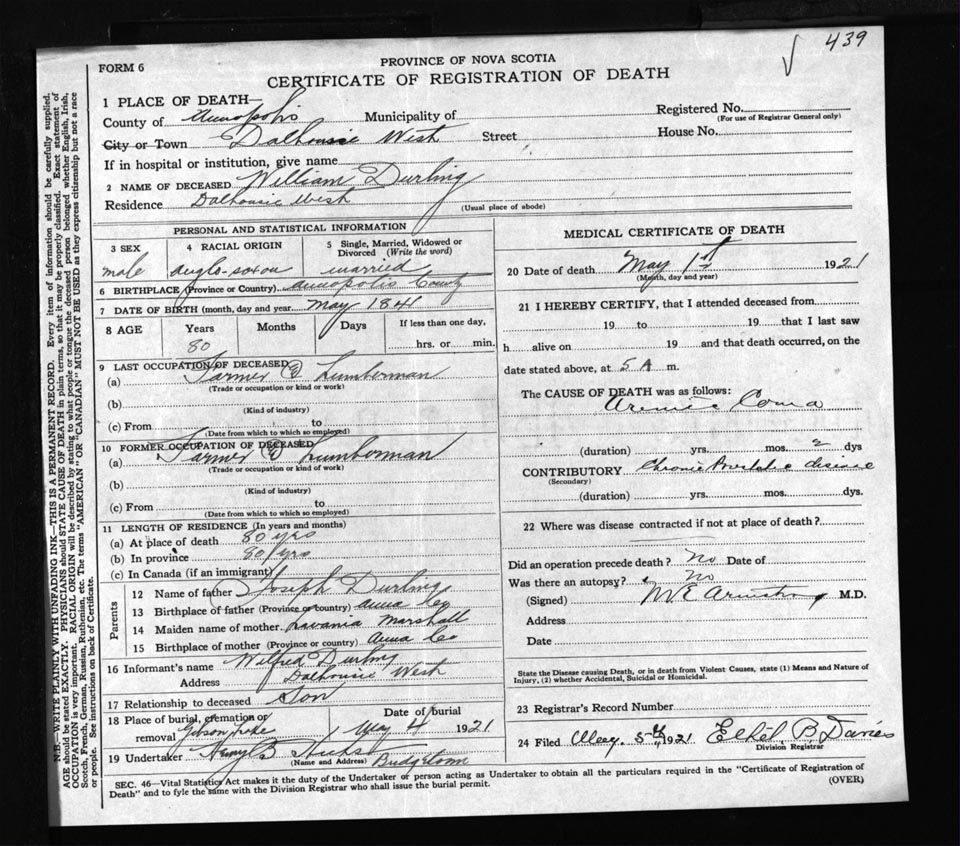 439
FORM 6
PROVINCE OF NOVA SCOTIA
CERTIFICATE OF REGISTRATION OF DEATH
1 PLACE OF DEATH—
County of Annapolis Municipality of Registered No.
(For use of Registrar General only)
City or Town Dalhousie West Street House No.
If in hospital or institution, give name
2 NAME OF DECEASED William Durling
Residence Dalhousie West (Usual place of abode)
PERSONAL AND STATISTICAL INFORMATION
3 SEX 4 RACIAL ORIGIN 5 Single, Married, Widowed or Divorced (Write the word)
male anglo-saxon married
6 BIRTHPLACE (Province or Country) Annapolis County
7 DATE OF BIRTH (month, day and year) May 1841
8 AGE Years Months Days If less than one day,
80 hrs. or min.
9 LAST OCCUPATION OF DECEASED
(a) Farmer & Lumberman
(Trade or occupation or kind of work)
(b)
(Kind of industry)
(c) From to
(Date from which to which so employed)
10 FORMER OCCUPATION OF DECEASED
(a) Farmer & Lumberman
(Trade or occupation or kind of work)
(b)
(Kind of industry)
(c) From to
(Date from which to which so employed)
11 LENGTH OF RESIDENCE (In years and months)
(a) At place of death 80 yrs
(b) In province 80 yrs
(c) In Canada (if an immigrant)
Parents
12 Name of father Joseph Durling
13 Birthplace of father (Province or country) Anna Co
14 Maiden name of mother Lavania Marshall
15 Birthplace of mother (Province or country) Anna Co
16 Informant's name Wilfred Durling
Address Dalhousie West
17 Relationship to deceased Son
18 Place of burial, cremation or removal Gibson Lake Date of burial May 4 1921
19 Undertaker Hicks Bridgetown
(Name and Address)
MEDICAL CERTIFICATE OF DEATH
20 Date of death May 1st 1921
(Month, day and year)
21 I HEREBY CERTIFY, that I attended deceased from
19 to 19 that I last saw
h alive on 19 and that death occurred, on the
date stated above, at 5 A m.
The CAUSE OF DEATH was as follows:
Uremic Coma
(duration) yrs. mos. 2 dys
CONTRIBUTORY Chronic Prostatic disease
(Secondary)
(duration) yrs. mos. dys.
22 Where was disease contracted if not at place of death?
Did an operation precede death? No Date of
Was there an autopsy? No
(Signed) M E Armstrong M.D.
Address
Date
State the Disease causing Death, or in death from Violent Causes, state (1) Means and Nature of
Injury, (2) whether Accidental, Suicidal or Homicidal.
23 Registrar's Record Number
24 Filed May 5th, 1921 Ethel B. Davies
Division Registrar
SEC. 46—Vital Statistics Act makes it the duty of the Undertaker or person acting as Undertaker to obtain all the particulars required in the "Certificate of Registration of
Death" and to fyle the same with the Division Registrar who shall issue the burial permit. (OVER)
N.B.—WRITE PLAINLY WITH UNFADING INK—THIS IS A PERMANENT RECORD. Every item of information should be carefully supplied.
AGE should be stated EXACTLY. PHYSICIANS should STATE CAUSE OF DEATH in plain terms, so that it may be properly classified. Exact statement of
OCCUPATION is very important. RACIAL ORIGIN will be described by stating to what people or tongue the deceased person belonged whether English, Irish,
Scotch, French, German, Russian, Ruthenian, etc. The terms "AMERICAN" OR "CANADIAN" MUST NOT BE USED as they express citizenship but not a race
or people. See instructions on back of Certificate.